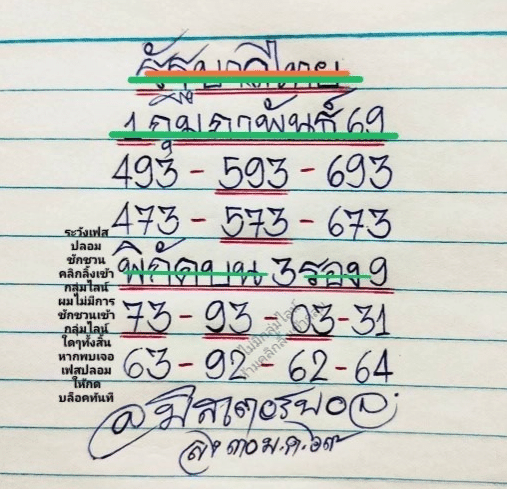 รัฐบาลไทย
1 กุมภาพันธ์ 69
493 - 593 - 693
473 - 573 - 673
พิกัดบน 3 รอง 9
73 - 93 - 03 - 31
63 - 92 - 62 - 64
ระวังเฟส
ปลอม
ชักชวน
คลิกลิ้งเข้า
กลุ่มไลน์
ผมไม่มีการ
ชักชวนเข้า
กลุ่มไลน์
ใดๆทั้งสิ้น
หากพบเจอ
เฟสปลอม
ให้กด
บล็อคทันที
ไม่มีกลุ่มไลน์
มิสเตอร์พอล
ลง ๓๐ ม.ค. ๖๙